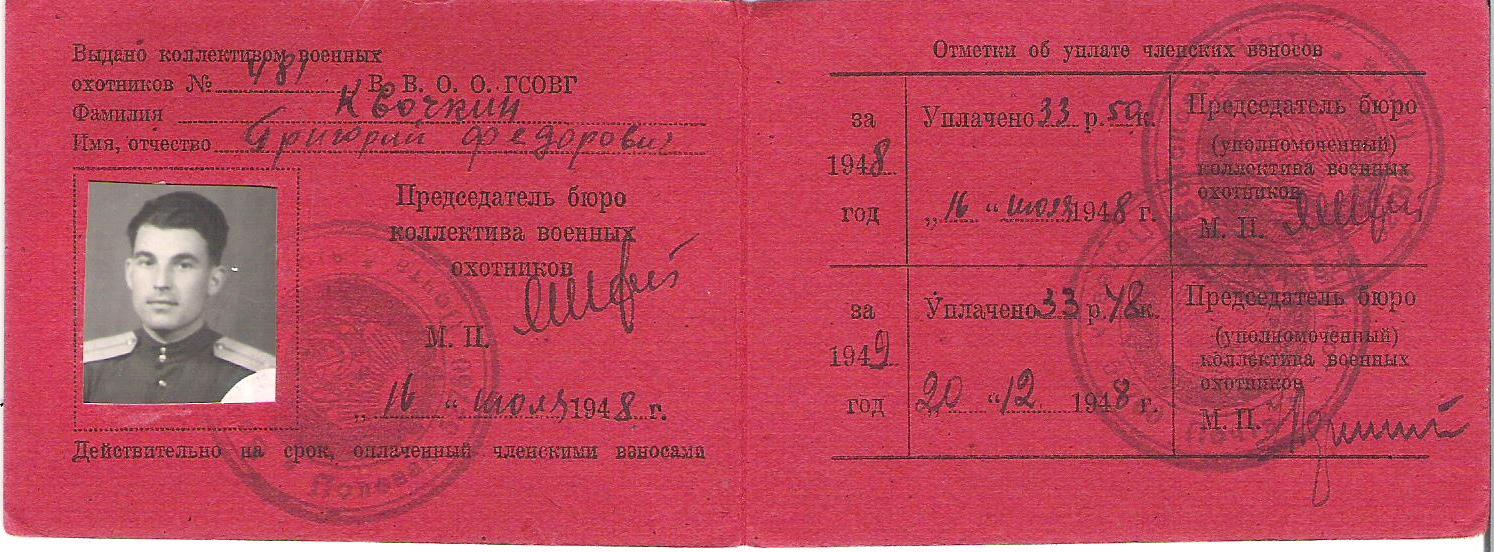 Выдано коллективом военных
охотников № 481 В. В. О. О. ГСОВГ
Фамилия Квочкин
Имя, отчество Григорий Федорович
Председатель бюро
коллектива военных
охотников
М. П.
„ 16 “ июля 1948 г.
Действительно на срок, оплаченный членскими взносами
Отметки об уплате членских взносов
за
1948
год
Уплачено 33 р. 50 к.
„ 16 “ июля 1948 г.
Председатель бюро
(уполномоченный)
коллектива военных
охотников
М. П.
за
1949
год
Уплачено 33 р. 48 к.
20 “ 12 1948 г.
Председатель бюро
(уполномоченный)
коллектива военных
охотников
М. П.